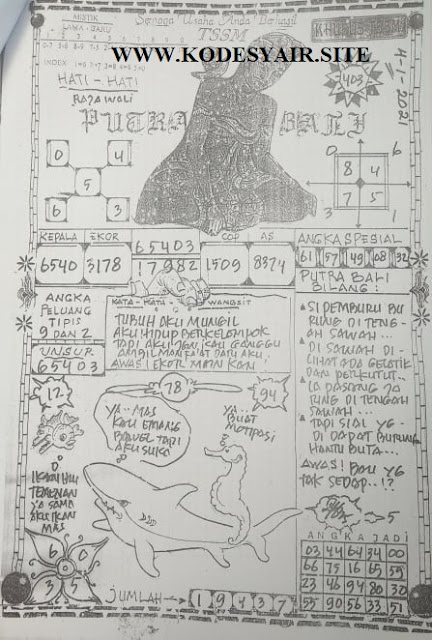 MISTIK
Semoga Usaha Anda Berhasil
TSSM
WWW.KODESYAIR.SITE
4-1-2021
1403
HATI - HATI
RAJAWALI
PUTRA BALI
0 4
5
6 3
0 6
8 4
7 5
3 1
KEPALA EKOR 65403 COP AS
6540 3178 17982 1509 8374
ANGKA SPESIAL
61 57 49 08 32
PUTRA BALI
BILANG :
ANGKA
PELUANG
TIPIS
9 DAN 2
UNSUR
65403
KATA - KATA WANGSIT
TUBUH AKU MUNGIL
AKU HIDUP BERKELOMPOK
TAPI AKU
AMBIL MANFAAT DARI AKU
AWAS! EKOR MAIN KAM
SI PEMBURU BU
RUNG DI TENG-
AH SAWAH...
DI SAWAH DI-
LIHAT ADA GELATIK
DAN PERKUTUT..
IA PASANG JA
RING DI TENGAH
SAWAH ...
TAPI SIAL YG
DI DAPAT BURUNG
HANTU BUTA...
AWAS! BAU YG
TAK SEDAP..!?
12
78
94
YA-MAS
KAU EMANG
BAWEL TAPI
AKU SUKA
YA...
BUAT
MOTIPASI
IKAN HIU
TEMENAN
YA SAMA
AKU IKAN
MAS
5
6 0
3 5
JUMLAH → 1 9 4 3 7
ANGKA JADI
03 44 64 34 00
66 75 16 65 59
23 46 94 80 30
55 90 56 33 51